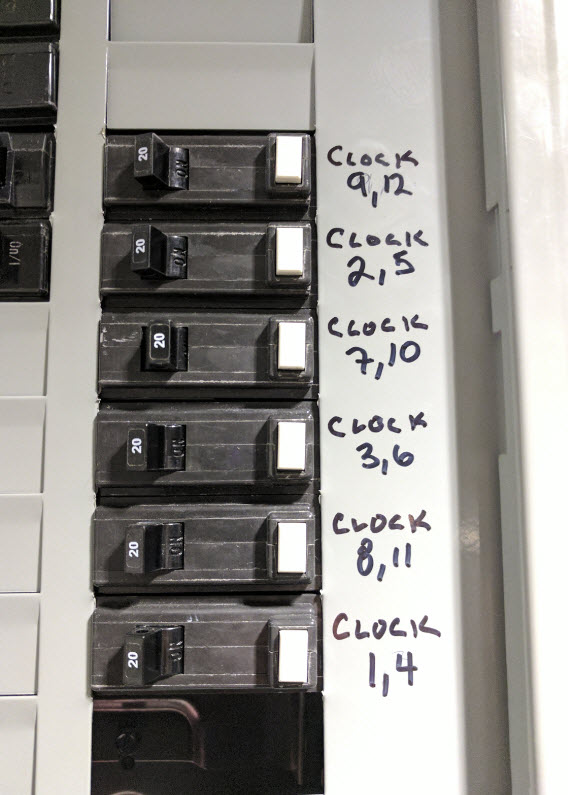 20 ON
CLOCK
9,12
20 ON
CLOCK
2,5
20
CLOCK
7,10
20 ON
CLOCK
3,6
20 ON
CLOCK
8,11
20 ON
CLOCK
1,4